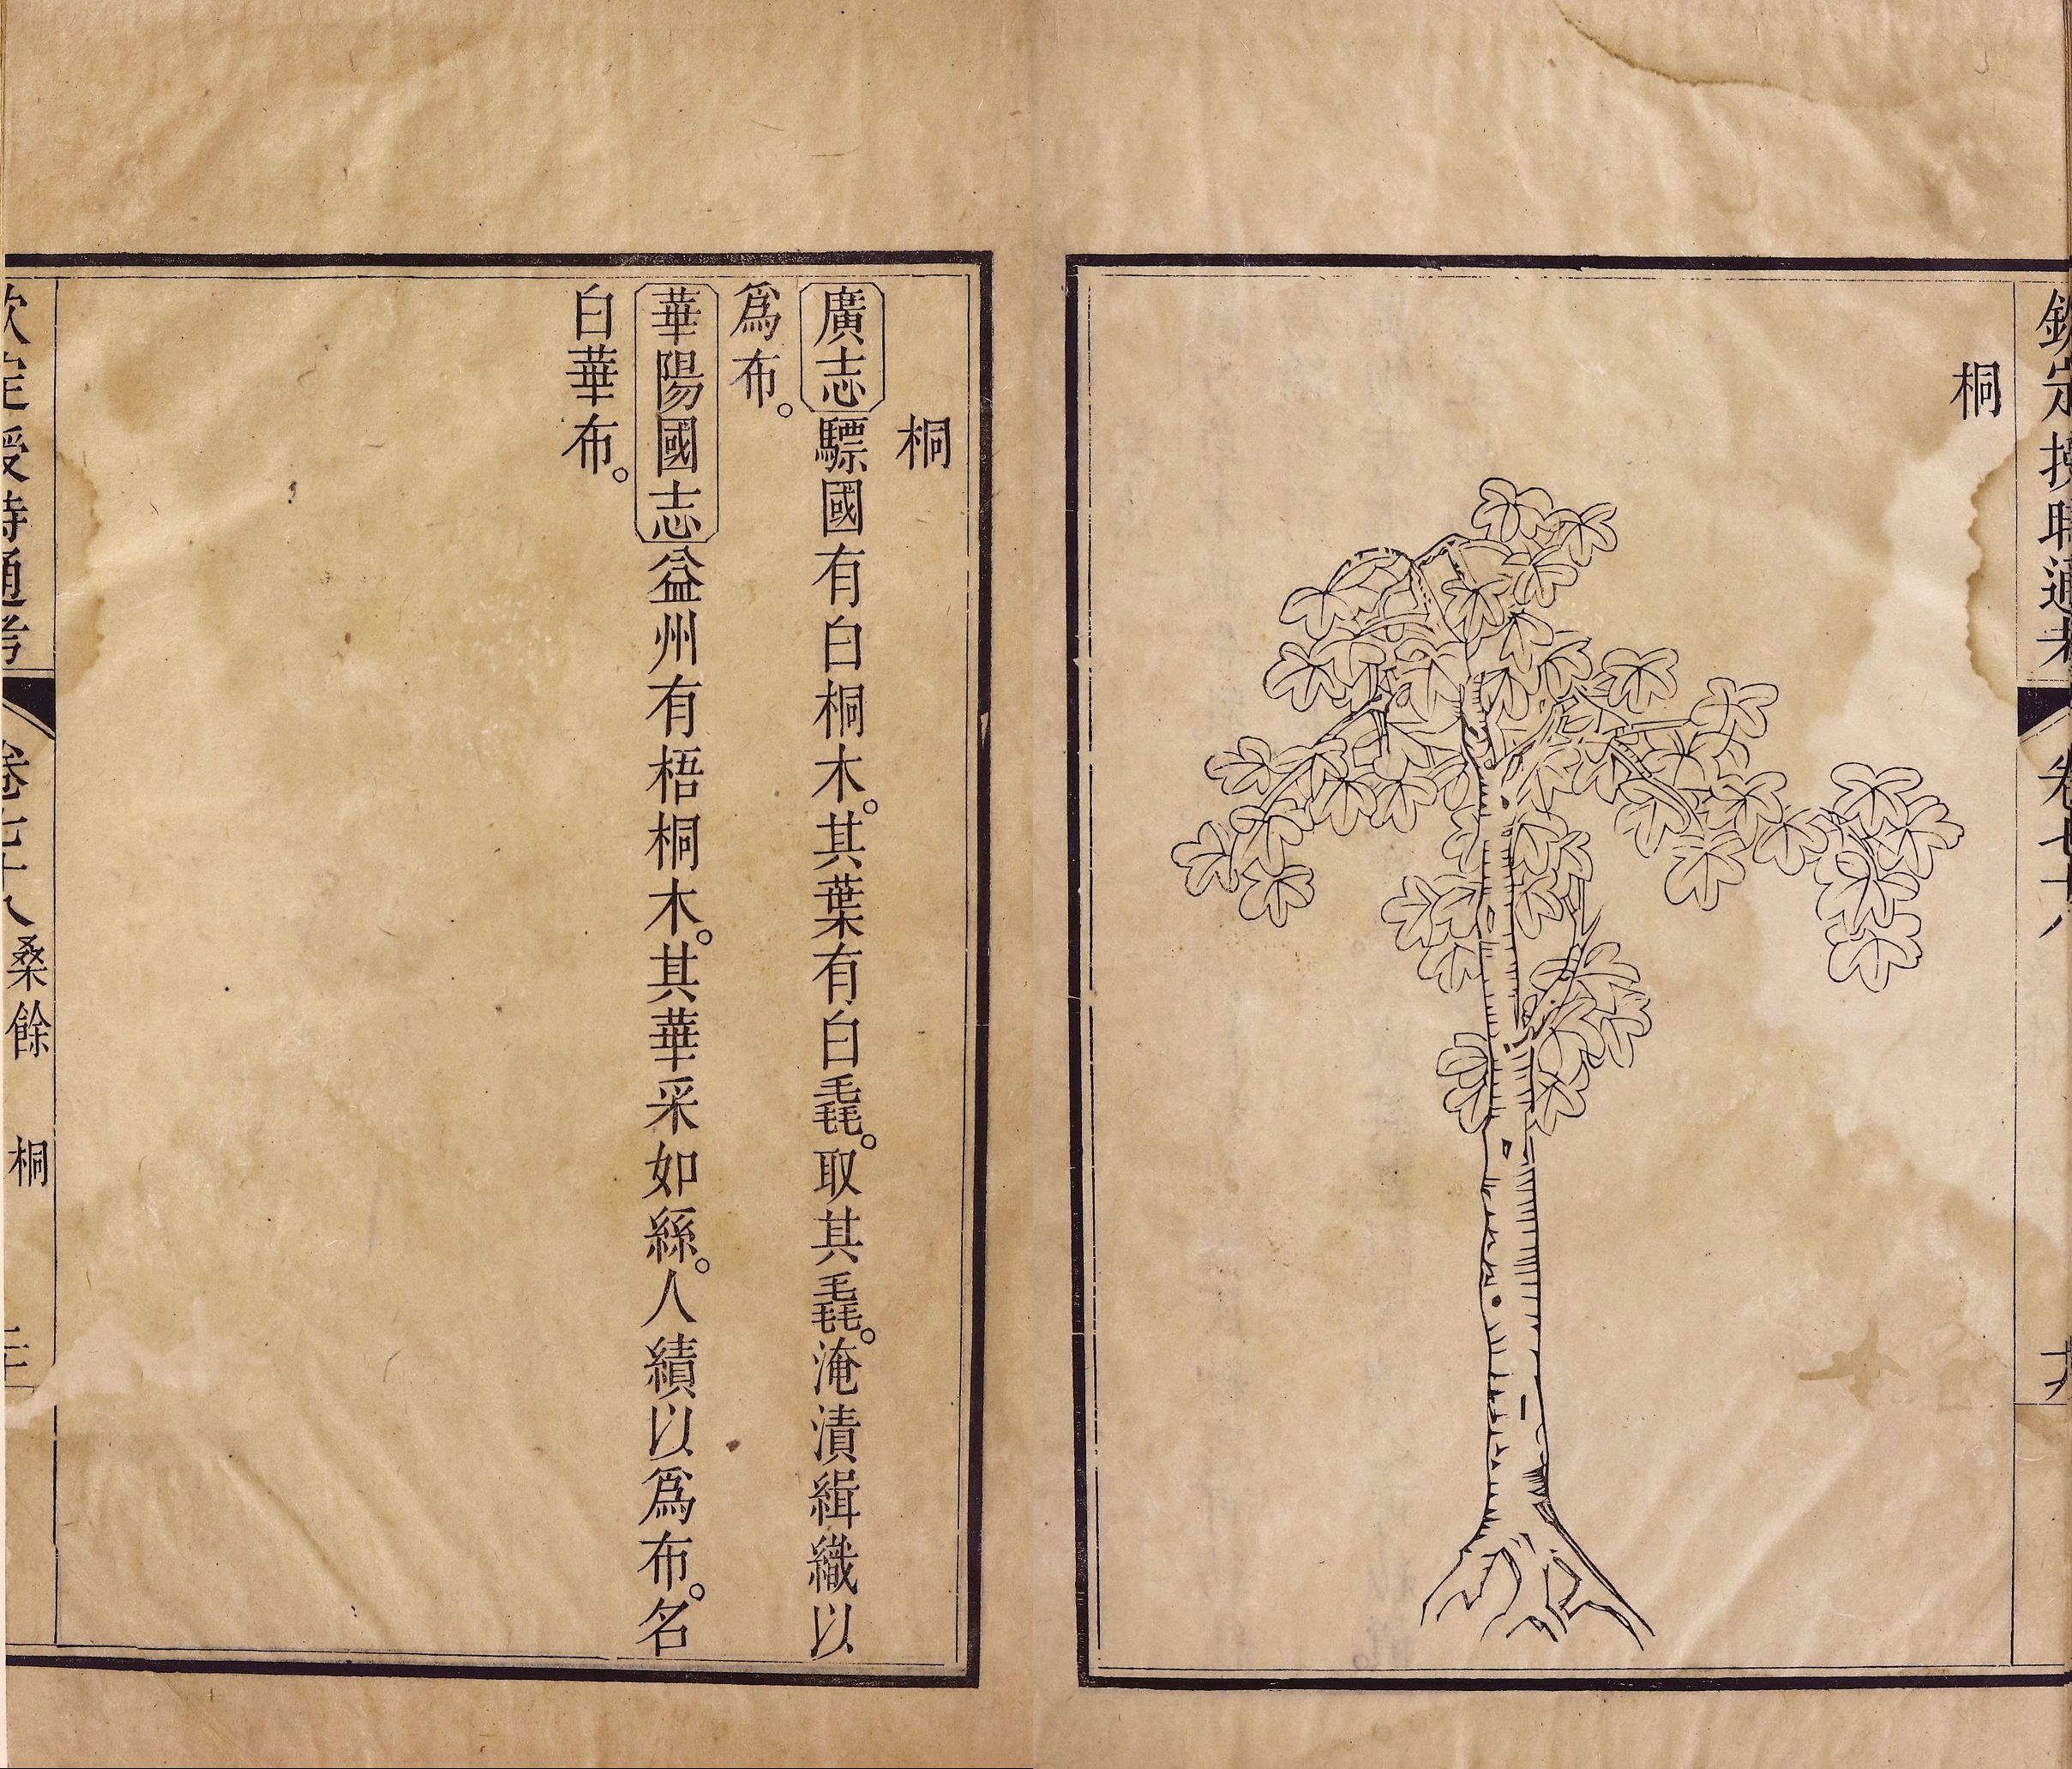 欽定授時通考 卷七十八
桐
桐
廣志驃國有白桐木。其葉有白毳。取其毳。淹漬緝織以
爲布。
華陽國志益州有梧桐木。其華采如絲。人績以爲布。名
白華布。
欽定授時通考 卷七十八 桑餘 桐